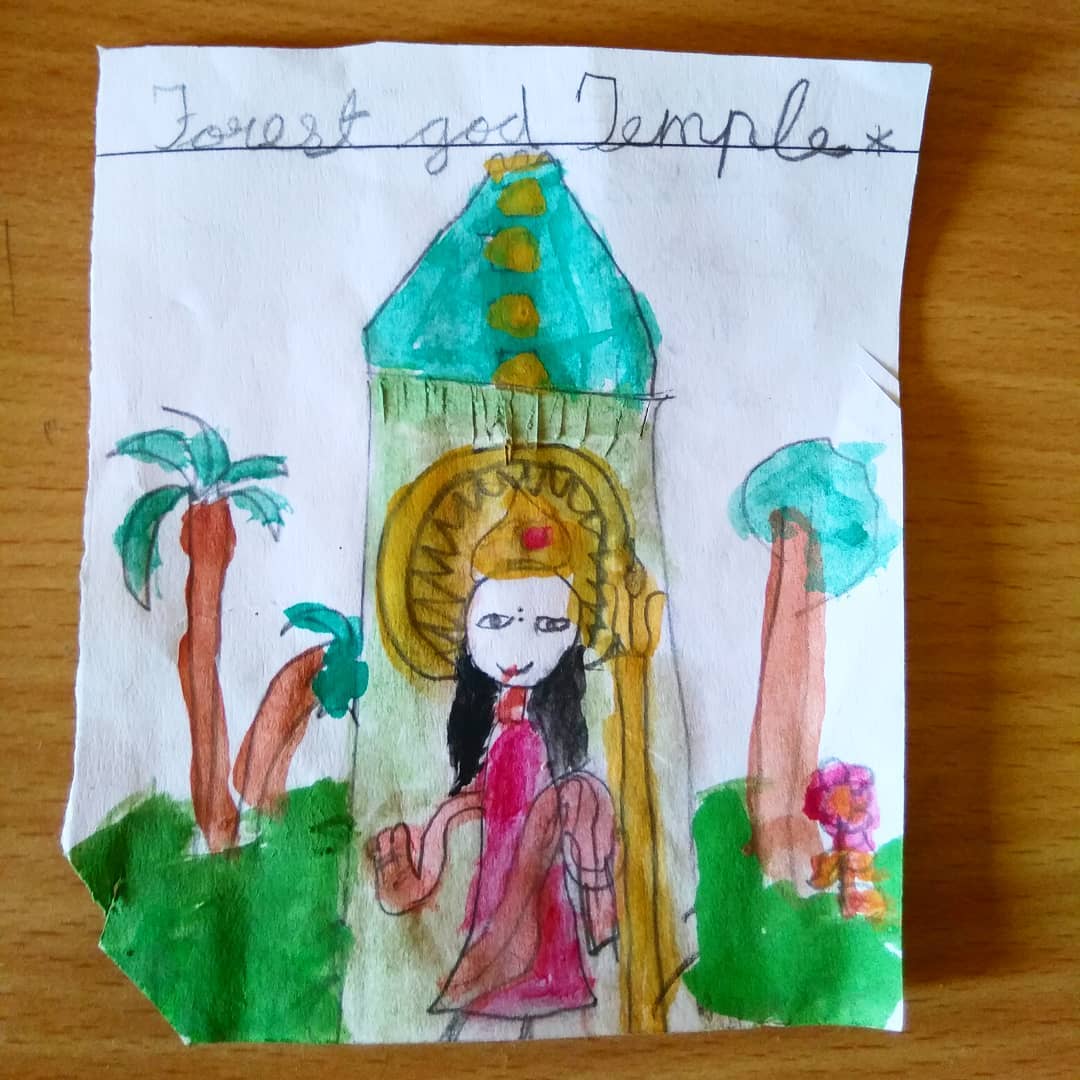 Forest god Temple*